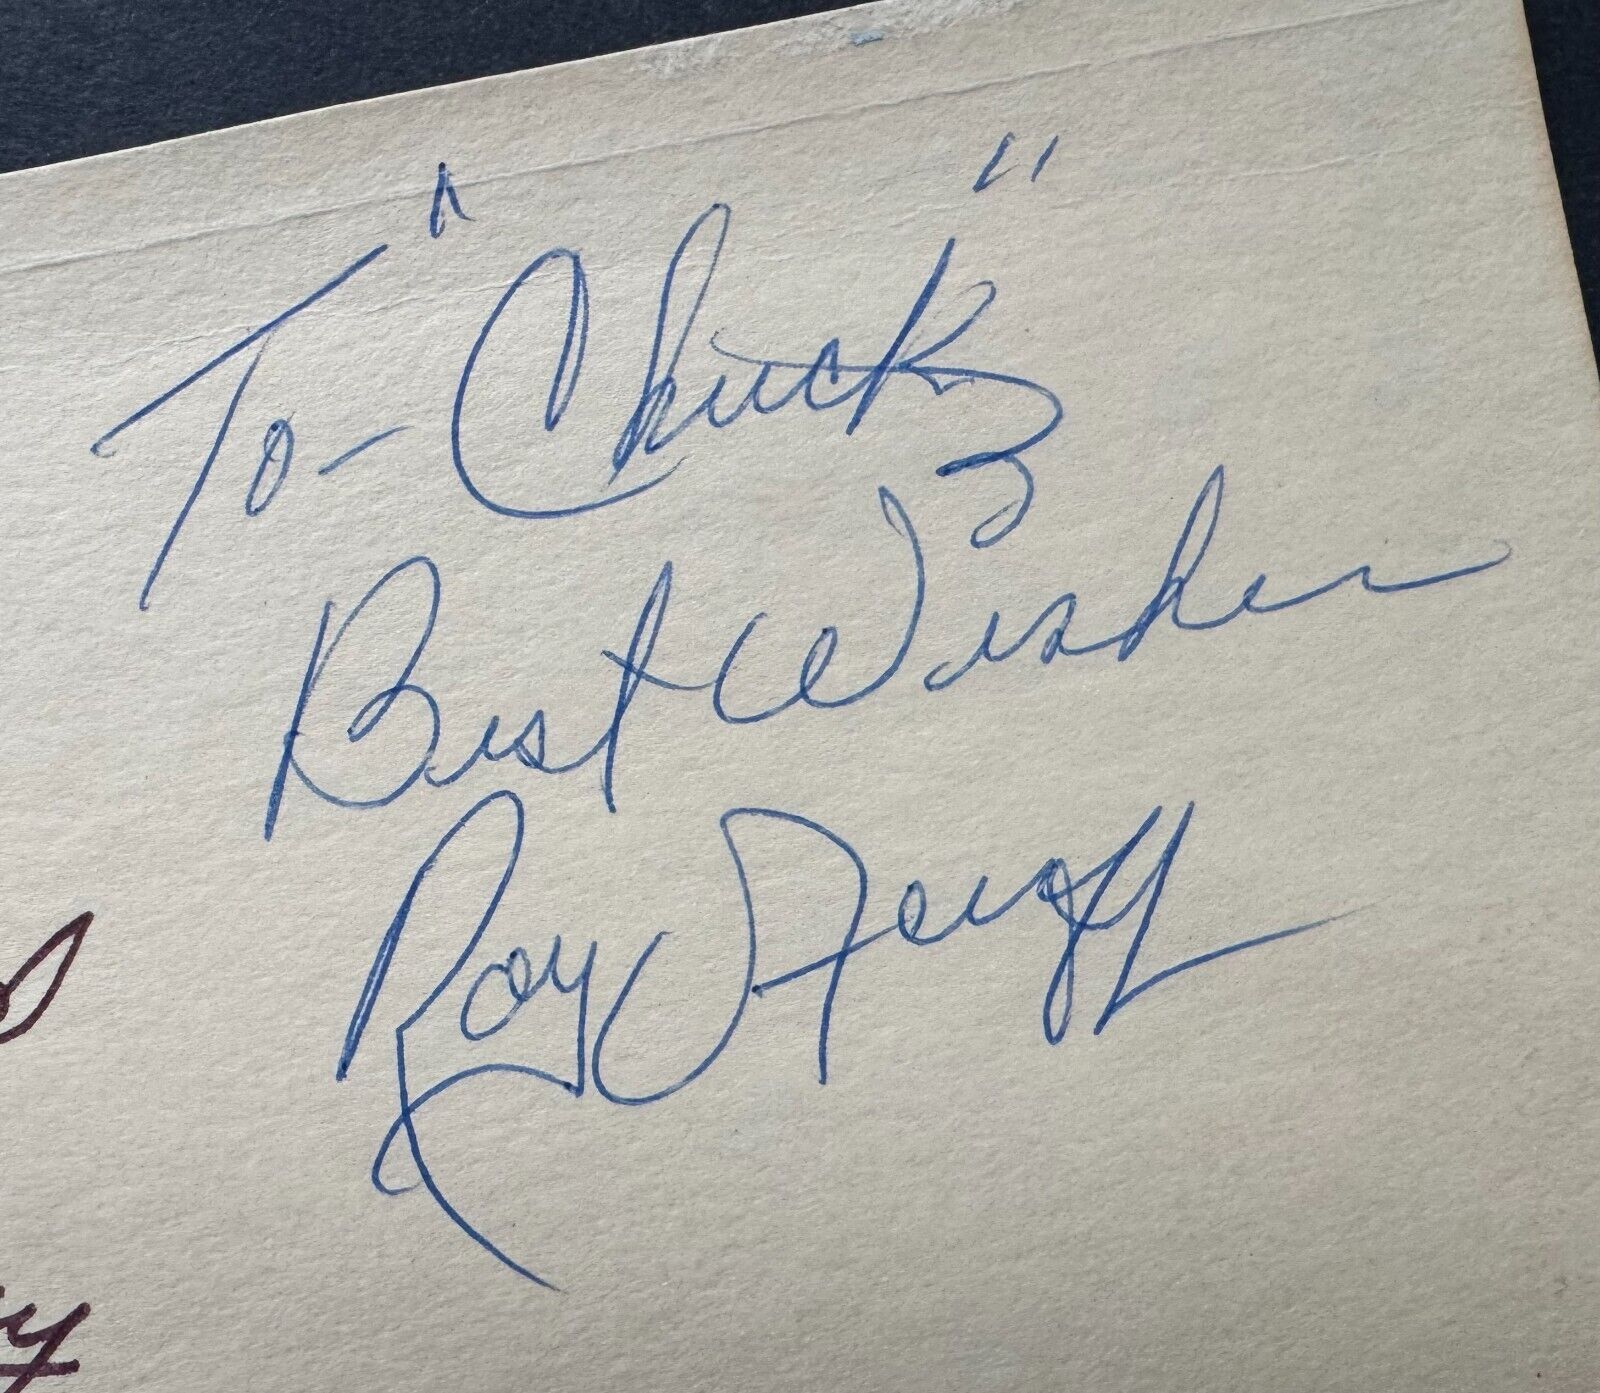 To- "Chuck"
Best Wishes
Roy